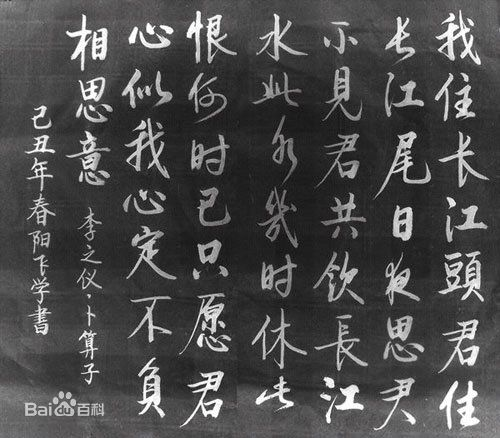 我住长江頭君住
长江尾日夜思君
不見君共飲長江
水此水幾时休此
恨何时已只愿君
心似我心定不負
相思意 李之仪·卜算子
己丑年春阳飞学書
Bai du 百科